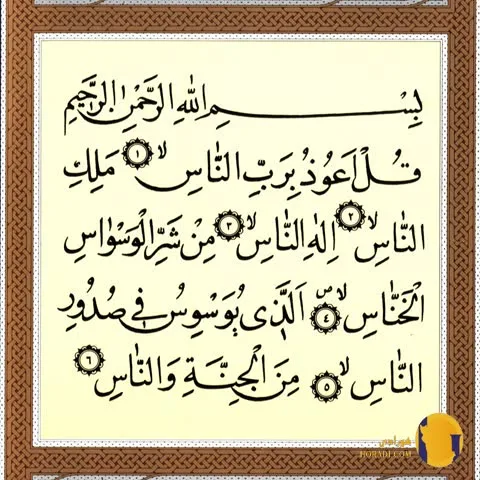 بِسْمِ اللهِ الرَّحْمٰنِ الرَّحِيمِ
قُلْ اَعُوذُ بِرَبِّ النَّاسِ ۙ ﴿١﴾ مَلِكِ
النَّاسِ ۙ ﴿٢﴾ اِلٰهِ النَّاسِ ۙ ﴿٣﴾ مِنْ شَرِّ الْوَسْوَاسِ
الْخَنَّاسِ ۙ ﴿٤﴾ اَلَّذِى يُوَسْوِسُ فِى صُدُورِ
النَّاسِ ۙ ﴿٥﴾ مِنَ الْجِنَّةِ وَالنَّاسِ ﴿٦﴾
HORADI.COM